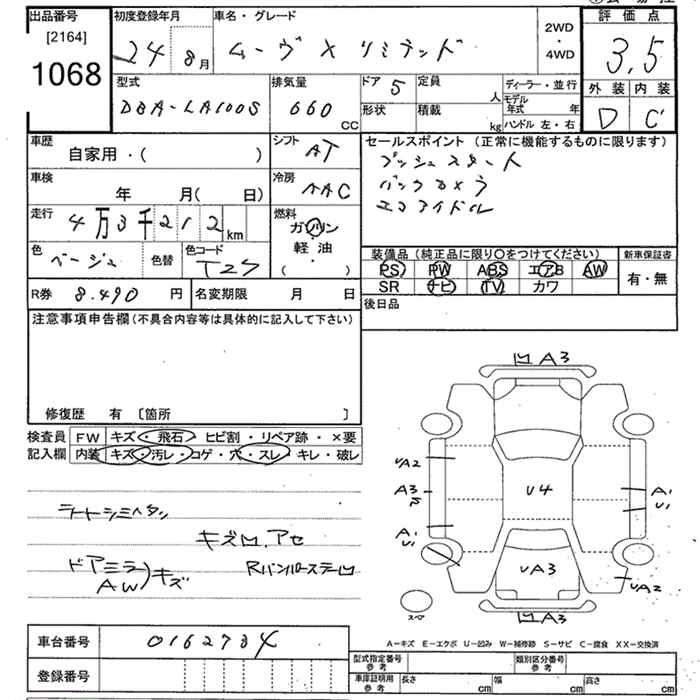 出品番号
[2164]
1068
初度登録年月
24 8月
車名・グレード
ムーヴ X リミテッド
2WD
・
4WD
評価点
3.5
型式
DBA-LA100S
排気量
660
CC
ドア 5
形状
定員
人
積載
kg
ディーラー・並行
モデル年式 年
ハンドル 左・右
外装 内装
D C
車歴
自家用・( )
シフト
AT
セールスポイント(正常に機能するものに限ります)
プッシュスタート
バックカメラ
エコアイドル
車検
年 月( 日)
冷房
AAC
走行
4万3千212km
燃料
ガソリン
・
軽油
( )
色
ベージュ
色替
色コード
T27
装備品(純正品に限り〇をつけてください)
新車保証書
PS PW ABS エアB AW
SR ナビ TV カワ
有・無
R券 8.490 円
名変期限 月 日
後日品
注意事項申告欄(不具合内容等は具体的に記入して下さい)
修復歴 有 〔箇所 〕
検査員
記入欄
FW キズ・飛石・ヒビ割・リペア跡・×要
内装 キズ・汚レ・コゲ・穴・スレ・キレ・破レ
ライトシミヘタン
キズ凹.アセ
ドアミラ
AW)キズ
RバンパーステーU
凹A3
UA2
A3
A1
U1
U4
A1
U1
UA3
UA2
スペア
凹A3
A-キズ E-エクボ U-凹み W-補修跡 S-サビ C-腐食 XX-交換済
車台番号
0162734
登録番号
型式指定番号
参考
類別区分番号
参考
車庫証明用
参考
長さ cm
幅 cm
高さ cm